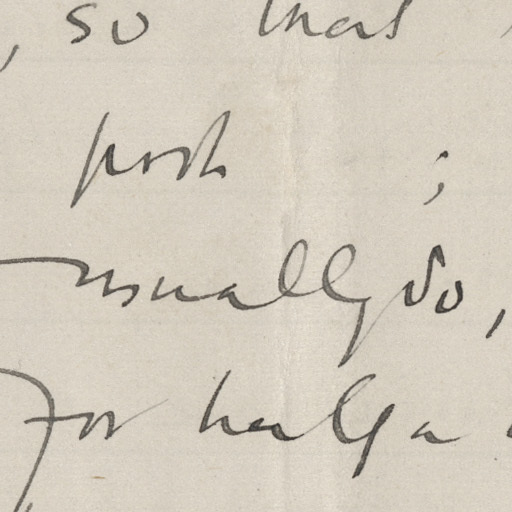 , so that
post ;
usually do,
for half a